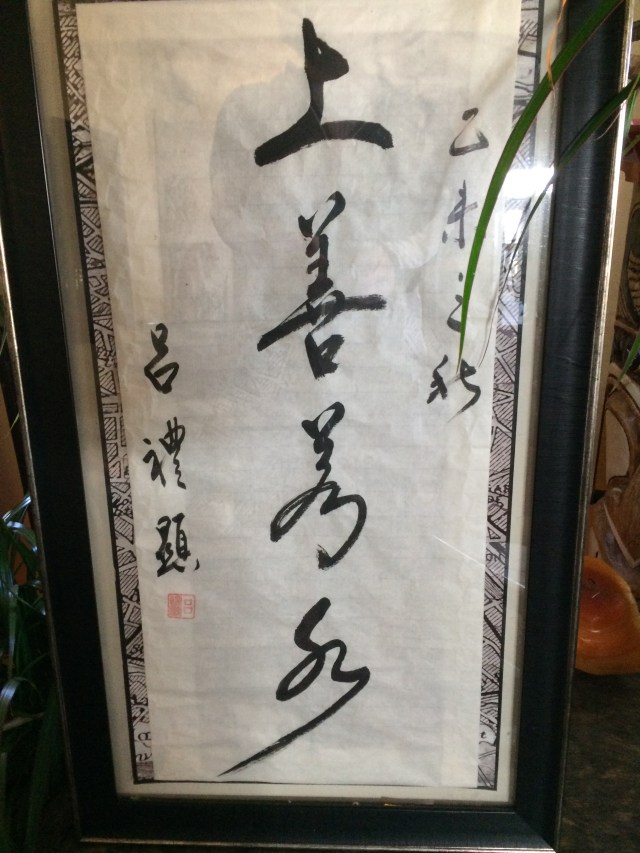 乙未之秋
上善若水
呂禮顯